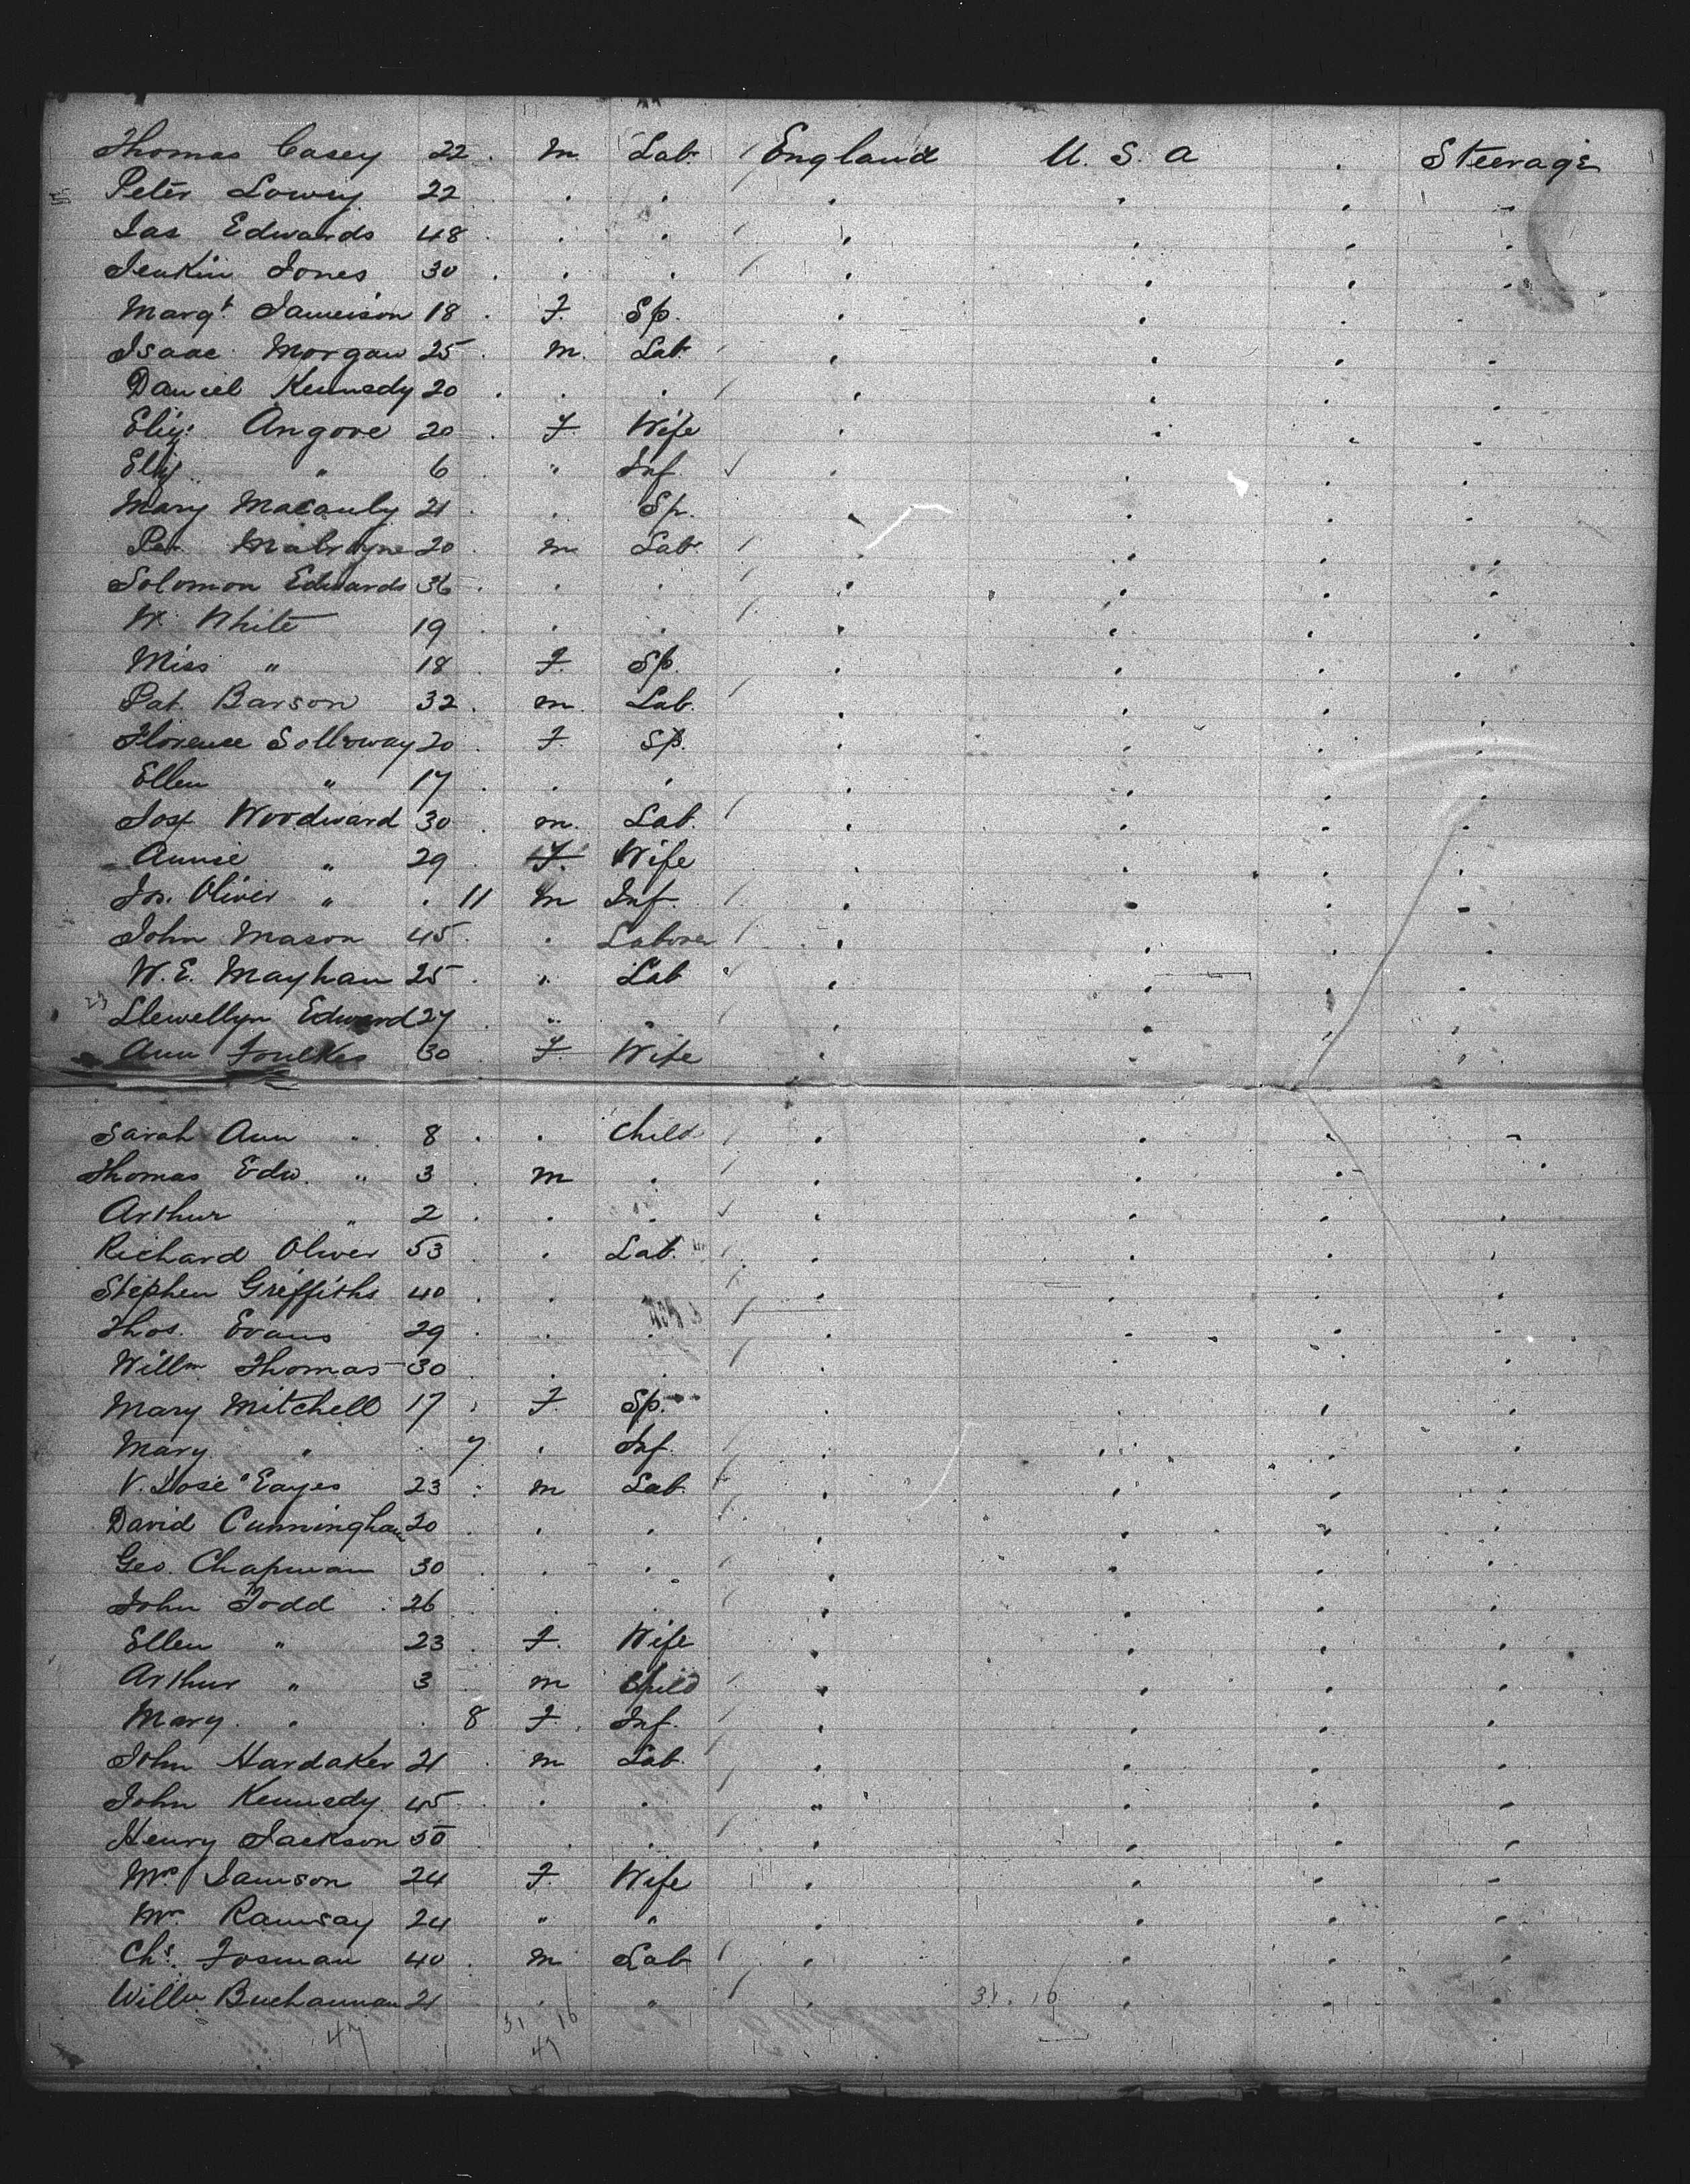 Thomas Casey 22 . m Lab. England U. S. A . Steerage
Peter Lowry 22 . . . . . . .
Jas Edwards 48 . . . . . . .
Jenkin Jones 30 . . . . . . .
Margt Jameison 18 . F. Sp. . . . .
Isaac Morgan 25 . m. Lab. . . . .
Daniel Kennedy 20 . . . . . . .
Eliz. Angove 20 . F. Wife . . . .
Eliz " 6 . " Inf. . . . .
Mary Macauly 21 . . Sp. . . . .
20 . m Lab. . . . .
Solomon Edwards 36 . . . . . . .
W. White 19 . . . . . . .
Miss " 18 . F. Sp. . . . .
Pat. Barson 32 . m. Lab. . . . .
Florence Solloway 20 . F. Sp. . . . .
Ellen " 17 . . . . . . .
Josh Woodward 30 . m. Lab. . . . .
Annie " 29 . F. Wife . . . .
Jos. Oliver " . 11 m Inf. . . . .
John Mason 45 . . Laborer . . . .
W. E. Mayhan 25 . " Lab . . . .
23
Llewellyn Edward 27 . " . . . . .
Ann Foulkes 30 . F. Wife . . . .
Sarah Ann " 8 . . Child . . . .
Thomas Edw. " 3 . m . . . . .
Arthur " 2 . . . . . . .
Richard Oliver 53 . . Lab. . . . .
Stephen Griffiths 40 . . . . . . .
Thos. Evans 29 . . . . . . .
Willm Thomas 30 . . . . . .
Mary Mitchell 17 . F. Sp. . . . .
Mary " . 7 . Inf. . . . .
V. Eayes 23 . m Lab. . . . .
David Cunningham 20 . . . . . . .
Geo. Chapman 30 . . . . . . .
John Todd 26 . . . . . . .
Ellen " 23 . F. Wife . . . .
Arthur " 3 m Child . . . .
Mary " . 8 F. Inf. . . . .
John Hardaker 21 . m Lab. . . . .
John Kennedy 45 . . . " . . .
Henry Jackson 50 . . . . . .
Mrs Jamson 24 F. Wife . . . .
Mrs Ramsay 24 " " . . . .
Chs. Fosman 40 . m Lab . . . .
Willm Buchannan 21 . " . . . .
31 . 16
31 16
47 47